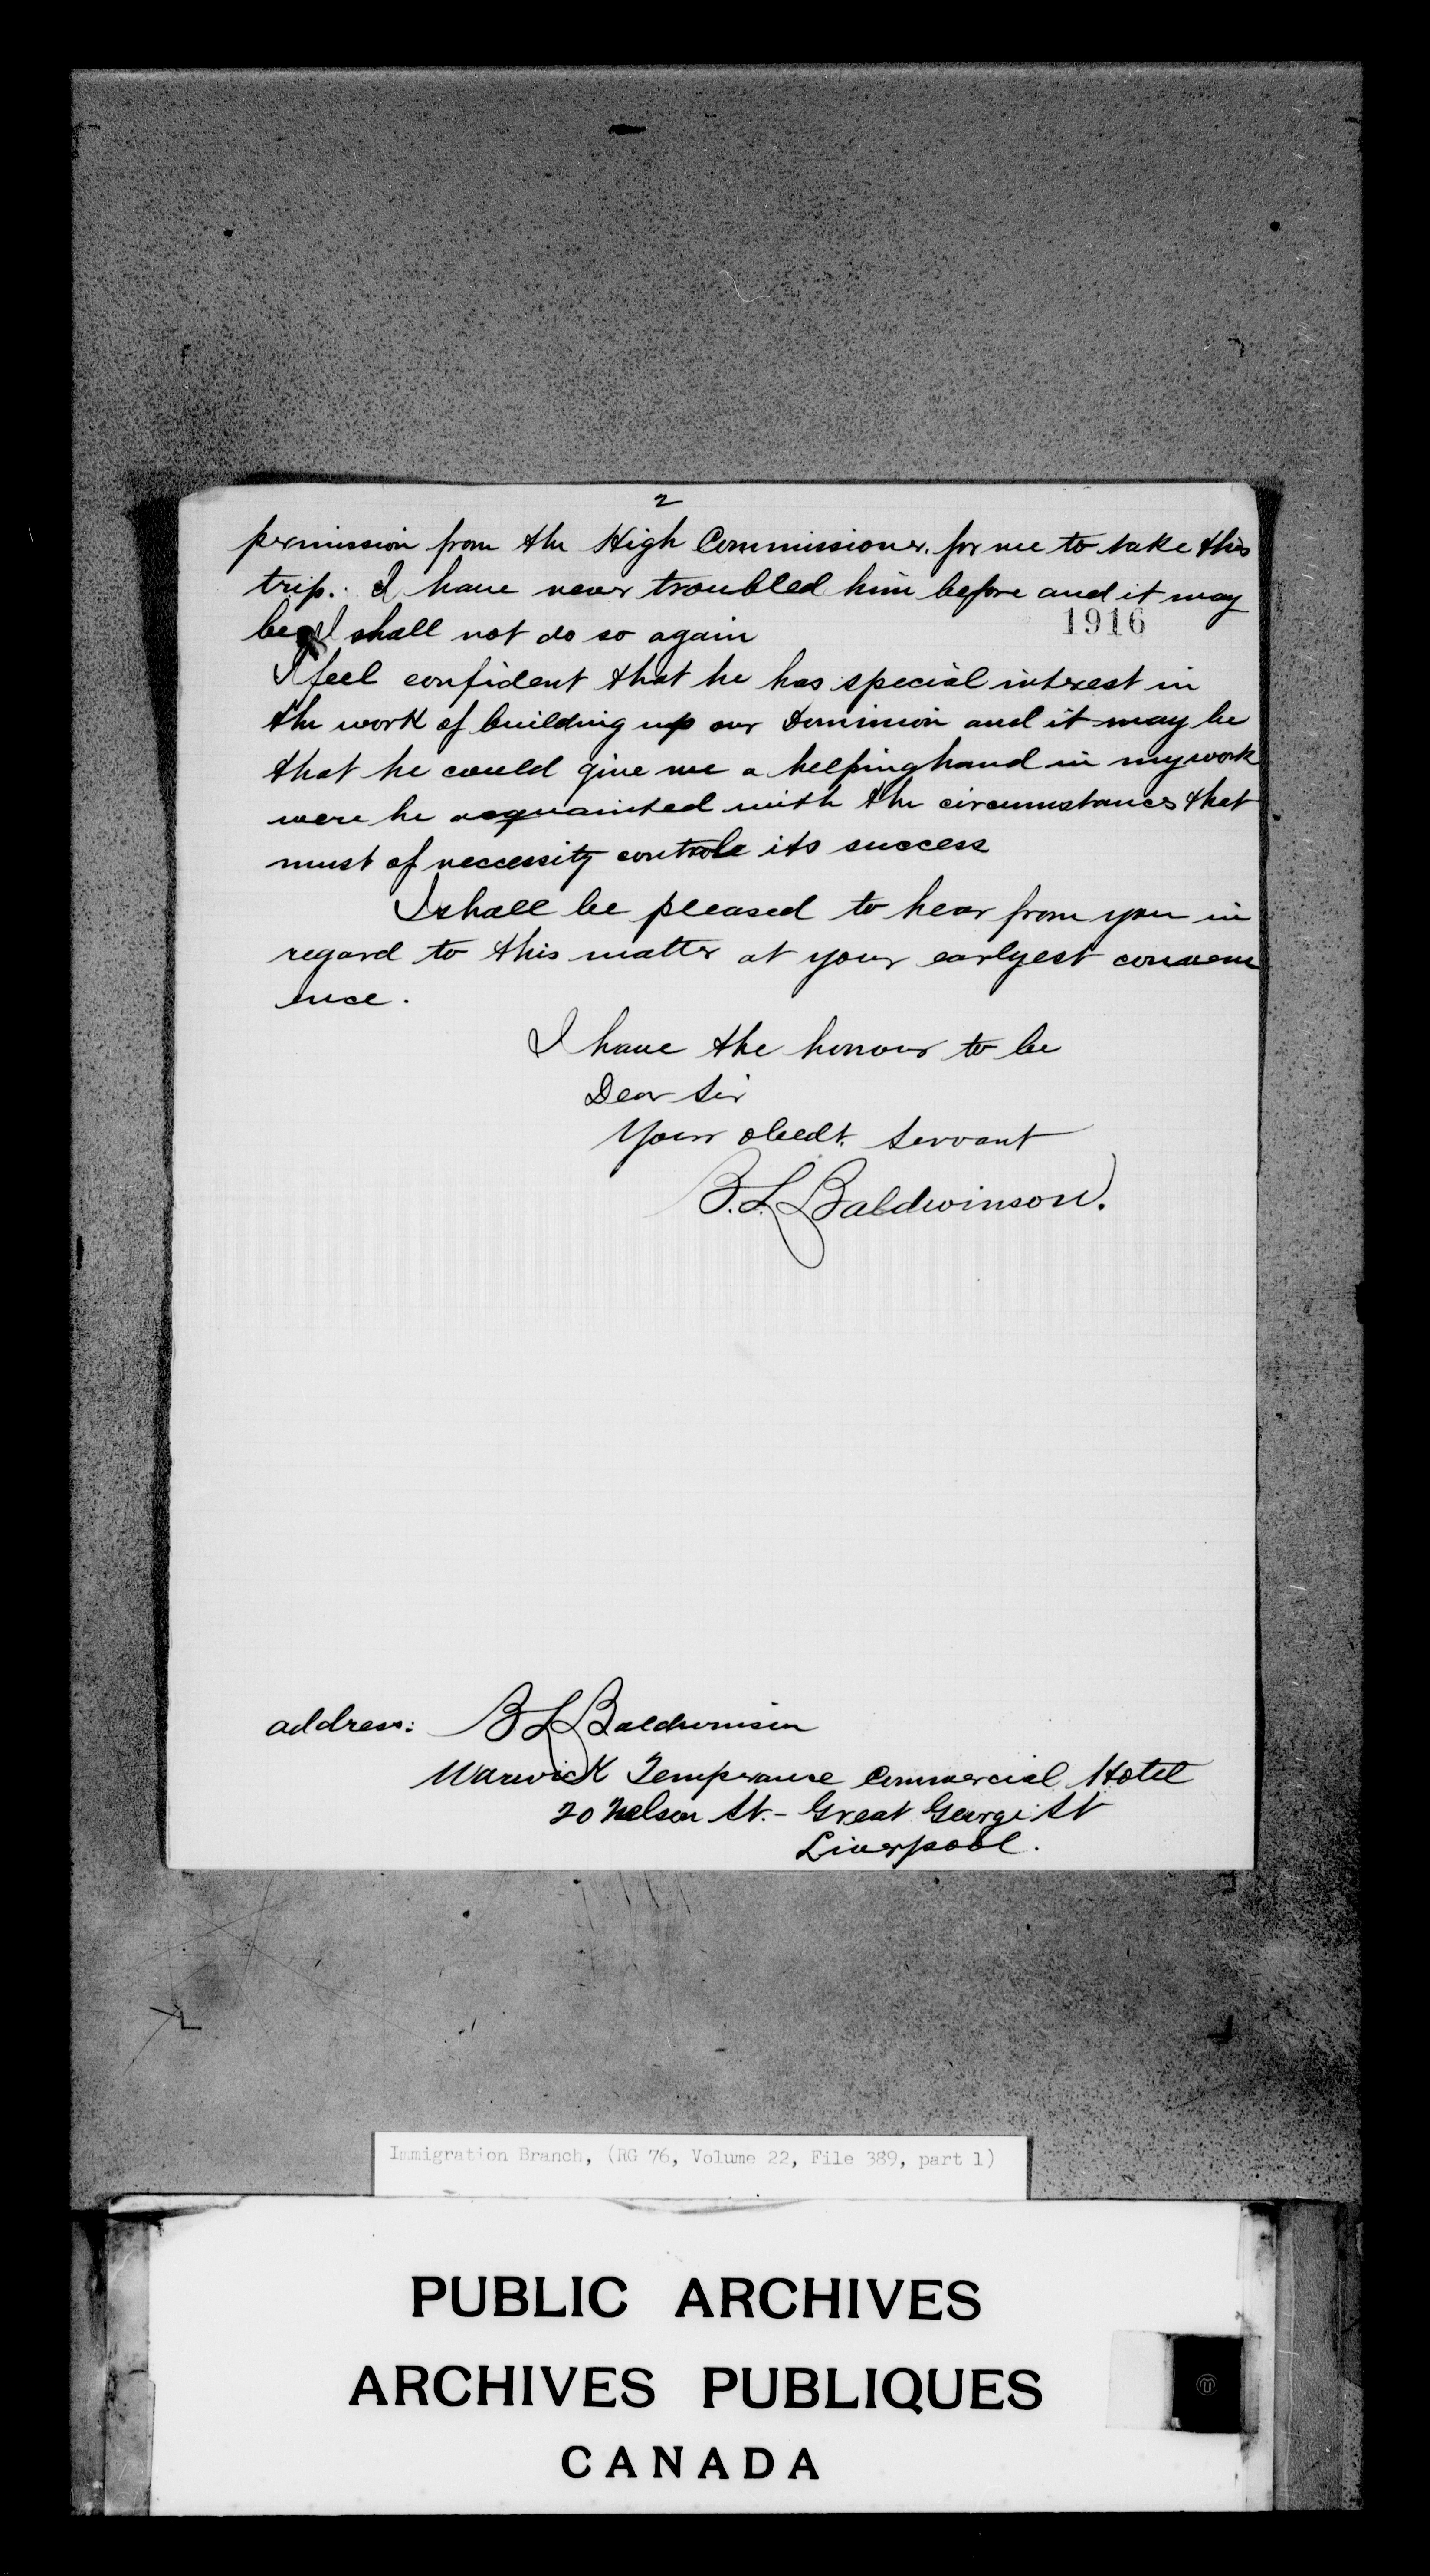 2
permission from the High Commissioner. for me to take this
trip. I have never troubled him before and it may
be I shall not do so again
1916
I feel confident that he has special interest in
the work of building up our Dominion and it may be
that he could give me a helping hand in my work
were he acquainted with the circumstances that
must of neccessity controle its success
I shall be pleased to hear from you in
regard to this matter at your earlyest conveni
ence.
I have the honour to be
Dear Sir
Your obedt. Servant
B.L. Baldwinson.
address: B L Baldwinson
Warwick Temperance Commercial Hotel
20 Nelson St. - Great George St
Liverpool.
Immigration Branch, (RG 76, Volume 22, File 389, part 1)
PUBLIC ARCHIVES
ARCHIVES PUBLIQUES
CANADA